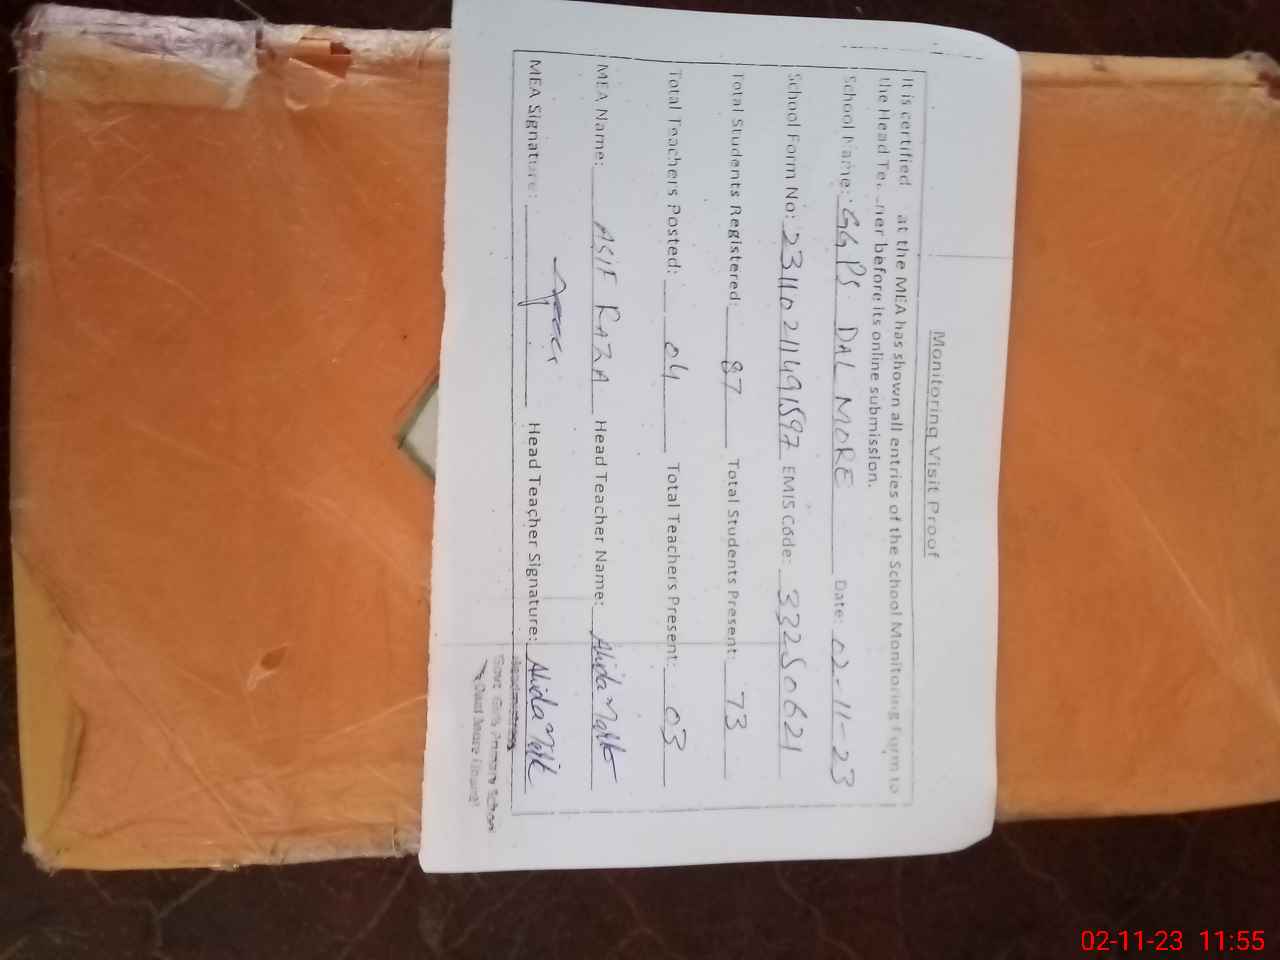 Monitoring Visit Proof
It is certified at the MEA has shown all entries of the School Monitoring Form to
the Head Te. ner before its online submission.
School Name: GGPS DAL MORE Date: 02-11-23
School Form No: 2311021149 1597 EMIS Code: 33250621
Total Students Registered: 87 Total Students Present: 73
Total Teachers Posted: 04 Total Teachers Present: 03
MEA Name: ASIF RAZA Head Teacher Name: Abida Malik
MEA Signature: Head Teacher Signature: Abida Malik
Headmistress
Govt. Girls Primary School
Daal More
02-11-23 11:55